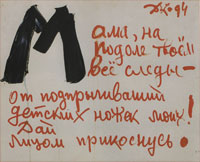 Дко 94
Мама, на
подоле твоём
всё следы —
от подпрыгиваший
детских ножек моих!
Дай
лицом прикоснусь!